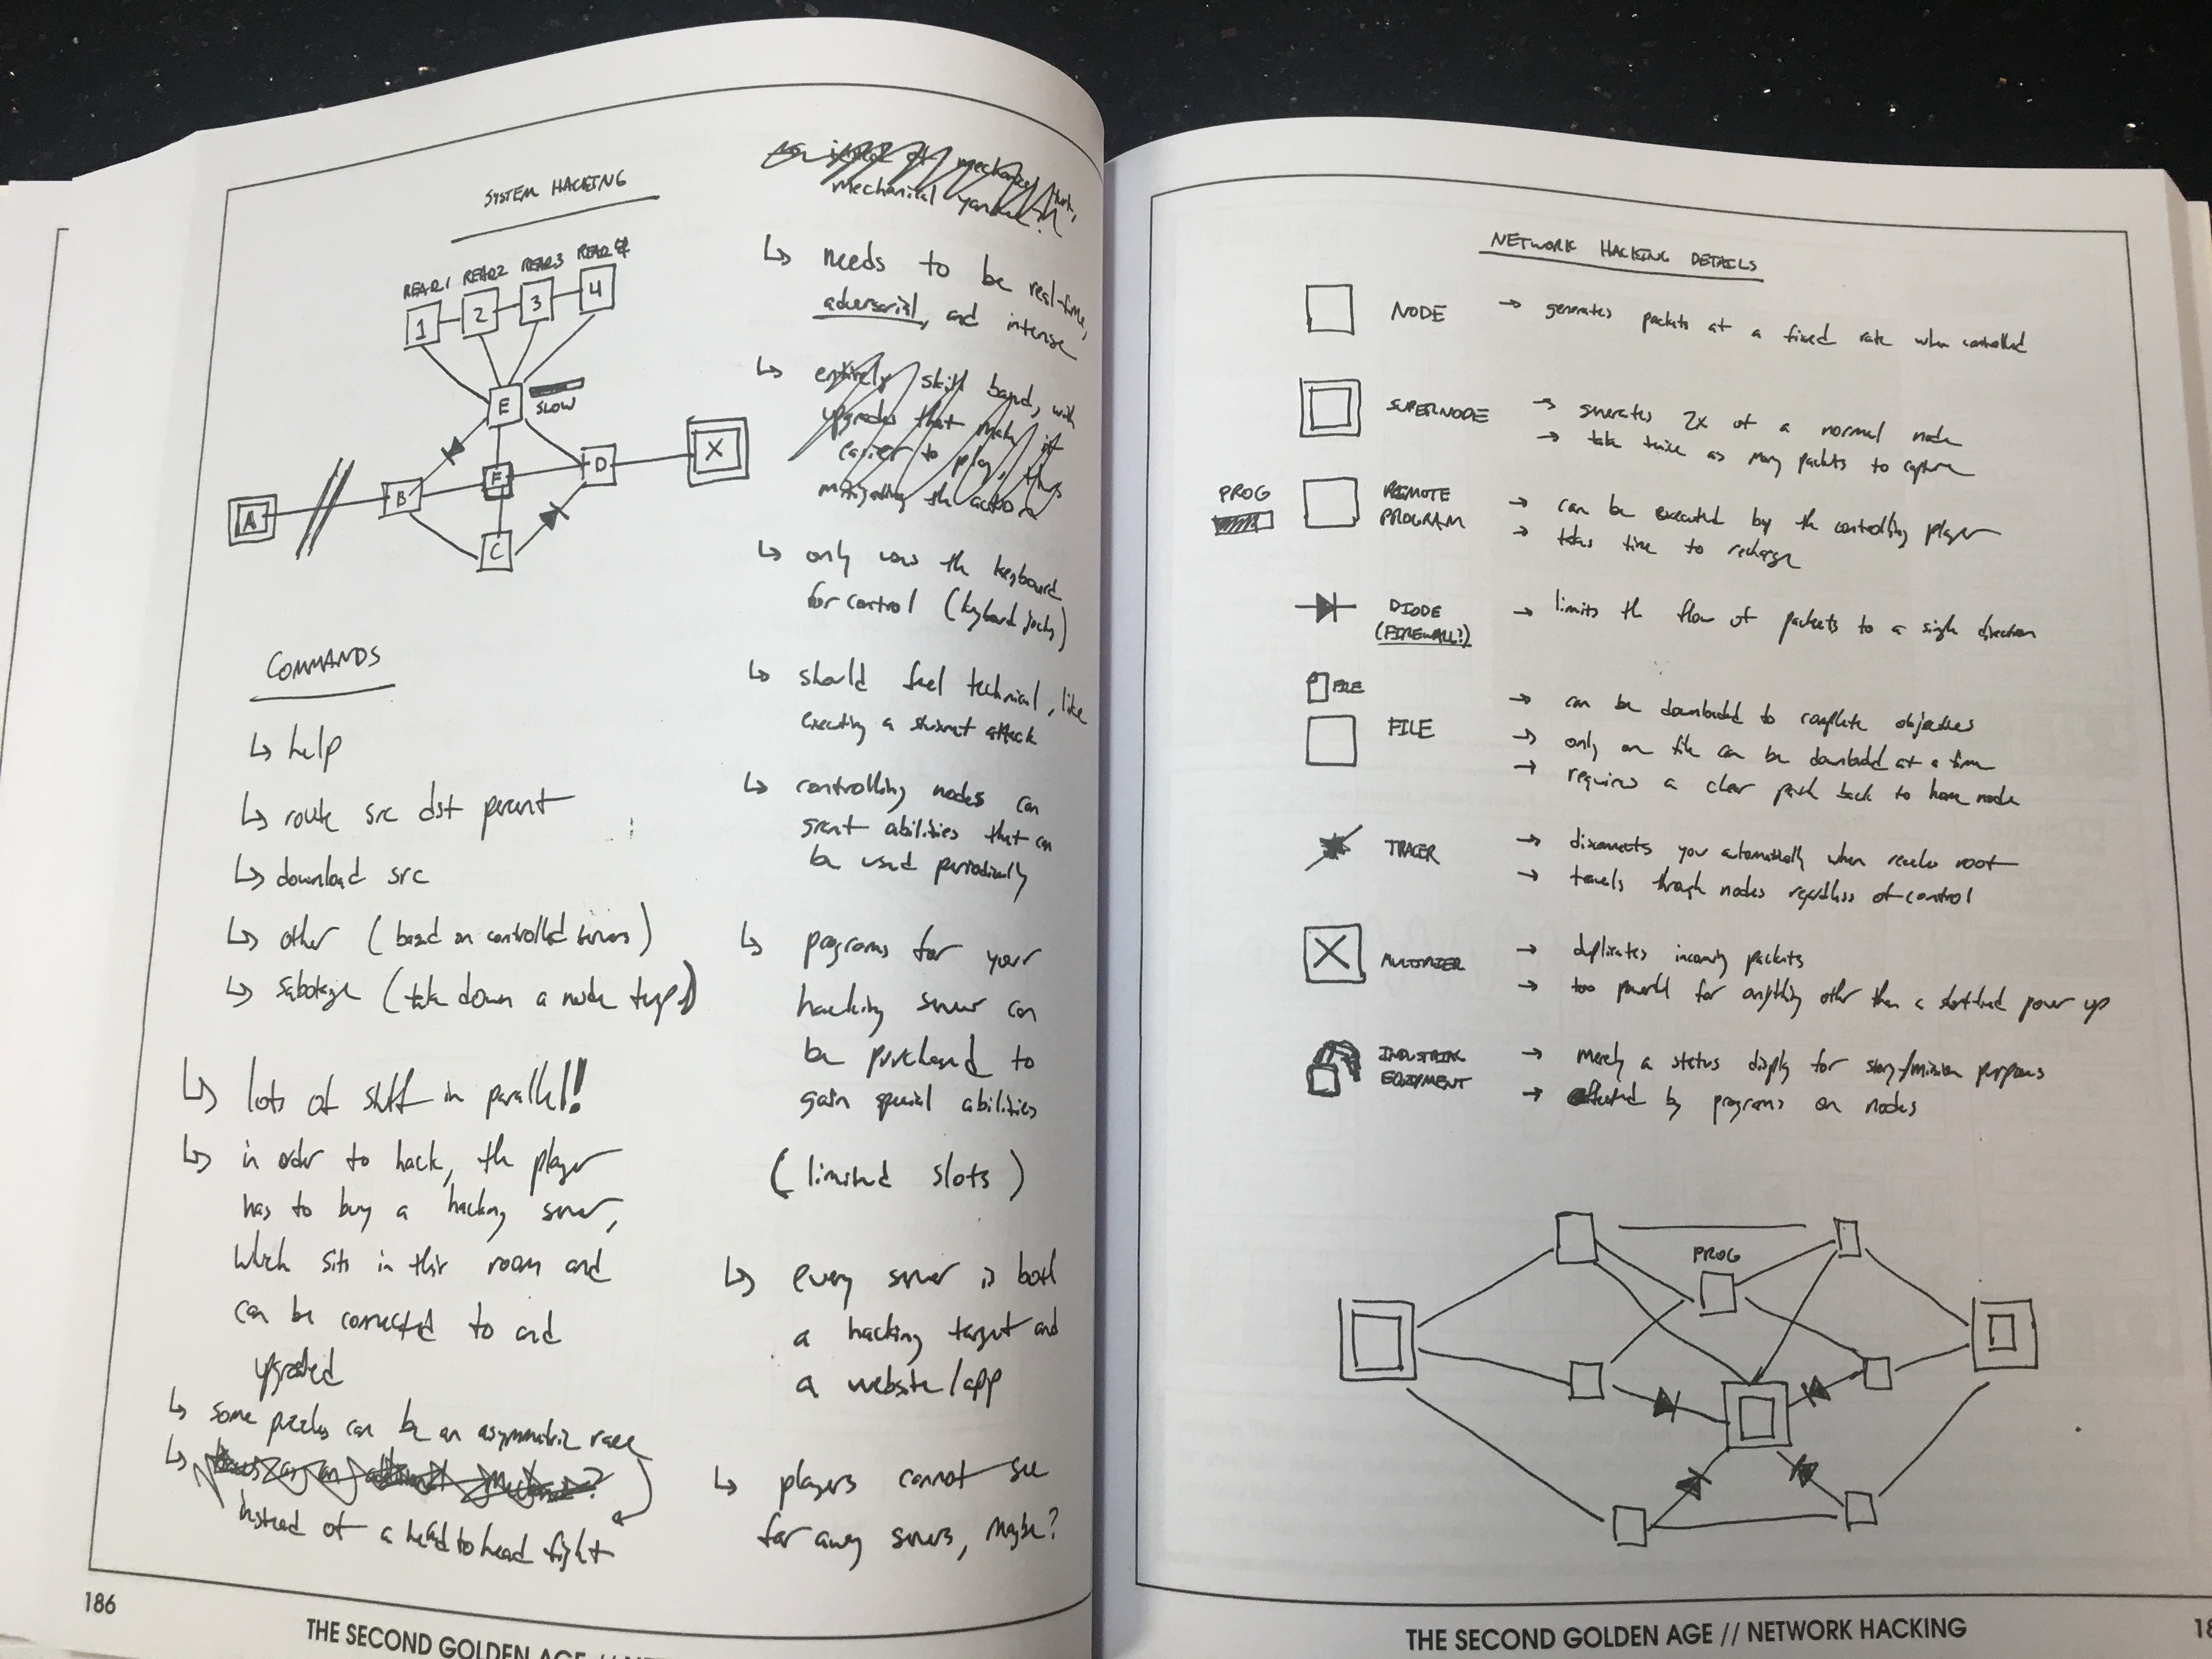 SYSTEM HACKING
READ1 READ2 READ3 READ4
1 2 3 4
E
SLOW
X
D
F
B
A
C
COMMANDS
↳ help
↳ route src dst percent
↳ download src
↳ other (based on controlled servers)
↳ sabotage (take down a node temp)
↳ lots of stuff in parallel!
↳ in order to hack, the player
has to buy a hacking server,
which sits in their room and
can be connected to and
upgraded
↳ some puzzles can be an asymmetric race
↳
instead of a head to head fight
mechanical
↳ needs to be real-time,
adversarial, and intense
↳ entirely skill based, with
upgrades that make it
easier to play, thus
mitigating the
↳ only uses the keyboard
for control (keyboard jocks)
↳ should feel technical, like
executing a stuxnet attack
↳ controlling nodes can
grant abilities that can
be used periodically
↳ programs for your
hacking server can
be purchased to
gain special abilities
(limited slots)
↳ every server is both
a hacking target and
a website/app
↳ players cannot see
far away servers, maybe?
186
THE SECOND GOLDEN AGE //
NETWORK HACKING DETAILS
NODE → generates packets at a fixed rate when controlled
SUPERNODE → generates 2x of a normal node
→ take twice as many packets to capture
PROG
REMOTE
PROGRAM → can be executed by the controlling player
→ takes time to recharge
DIODE
(FIREWALL?) → limits the flow of packets to a single direction
FILE
FILE → can be downloaded to complete objectives
→ only one file can be downloaded at a time
→ requires a clear path back to home node
TRACER → disconnects you automatically when reaches root
→ travels through nodes regardless of control
X MULTIPLIER → duplicates incoming packets
→ too powerful for anything other than a short-lived power up
INDUSTRIAL
EQUIPMENT → merely a status display for story/mission purposes
→ affected by programs on nodes
PROG
THE SECOND GOLDEN AGE // NETWORK HACKING